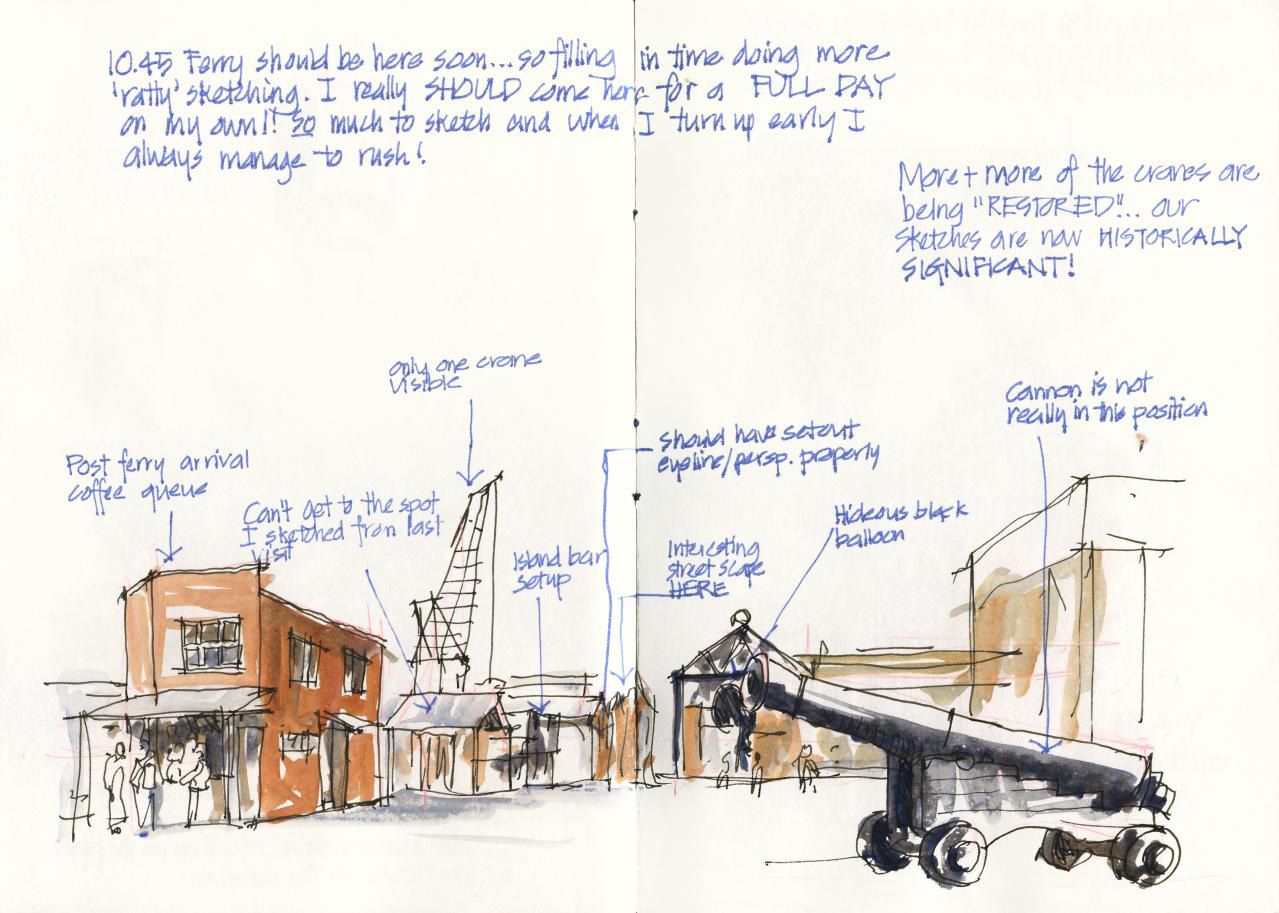 10.45 Ferry should be here soon... so filling in time doing more
'ratty' sketching. I really SHOULD come here for a FULL DAY
on my own!! So much to sketch and when I turn up early I
always manage to rush!
More + more of the cranes are
being "RESTORED"... our
sketches are now HISTORICALLY
SIGNIFICANT!
only one crane
visible
Cannon is not
really in this position
Should have setout
eyeline/persp. properly
Post ferry arrival
coffee queue
Can't get to the spot
I sketched from last
visit
Hideous black
balloon
Island bar
setup
Interesting
street scape
HERE